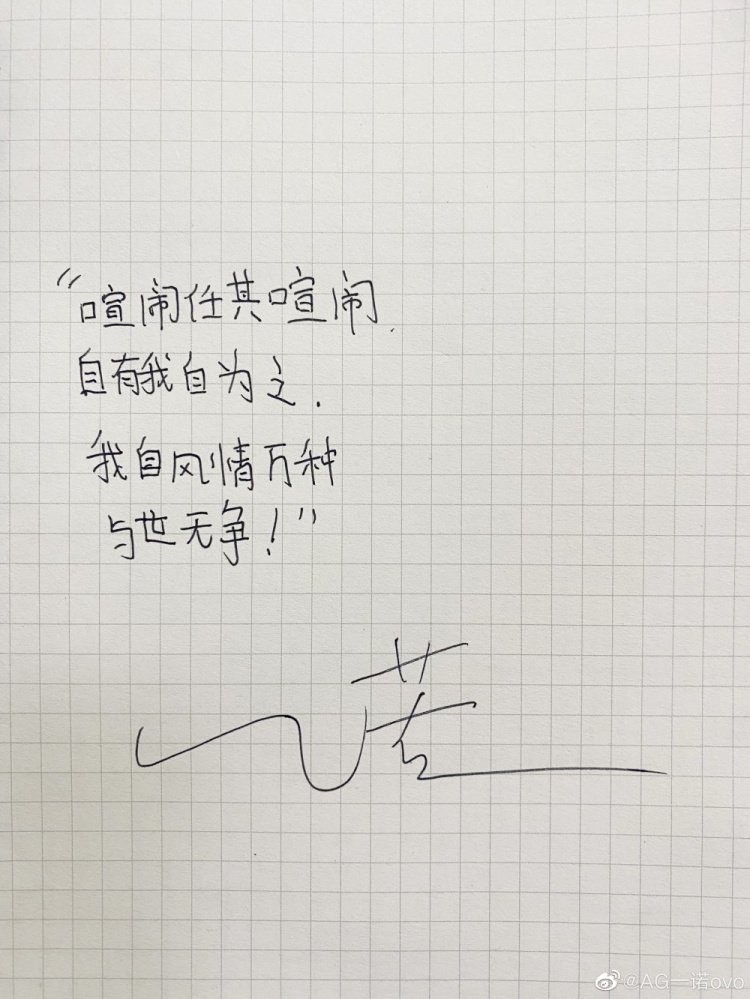 “喧闹任其喧闹.
自有我自为之.
我自风情万种
与世无争!”
一诺
@AG一诺ovo